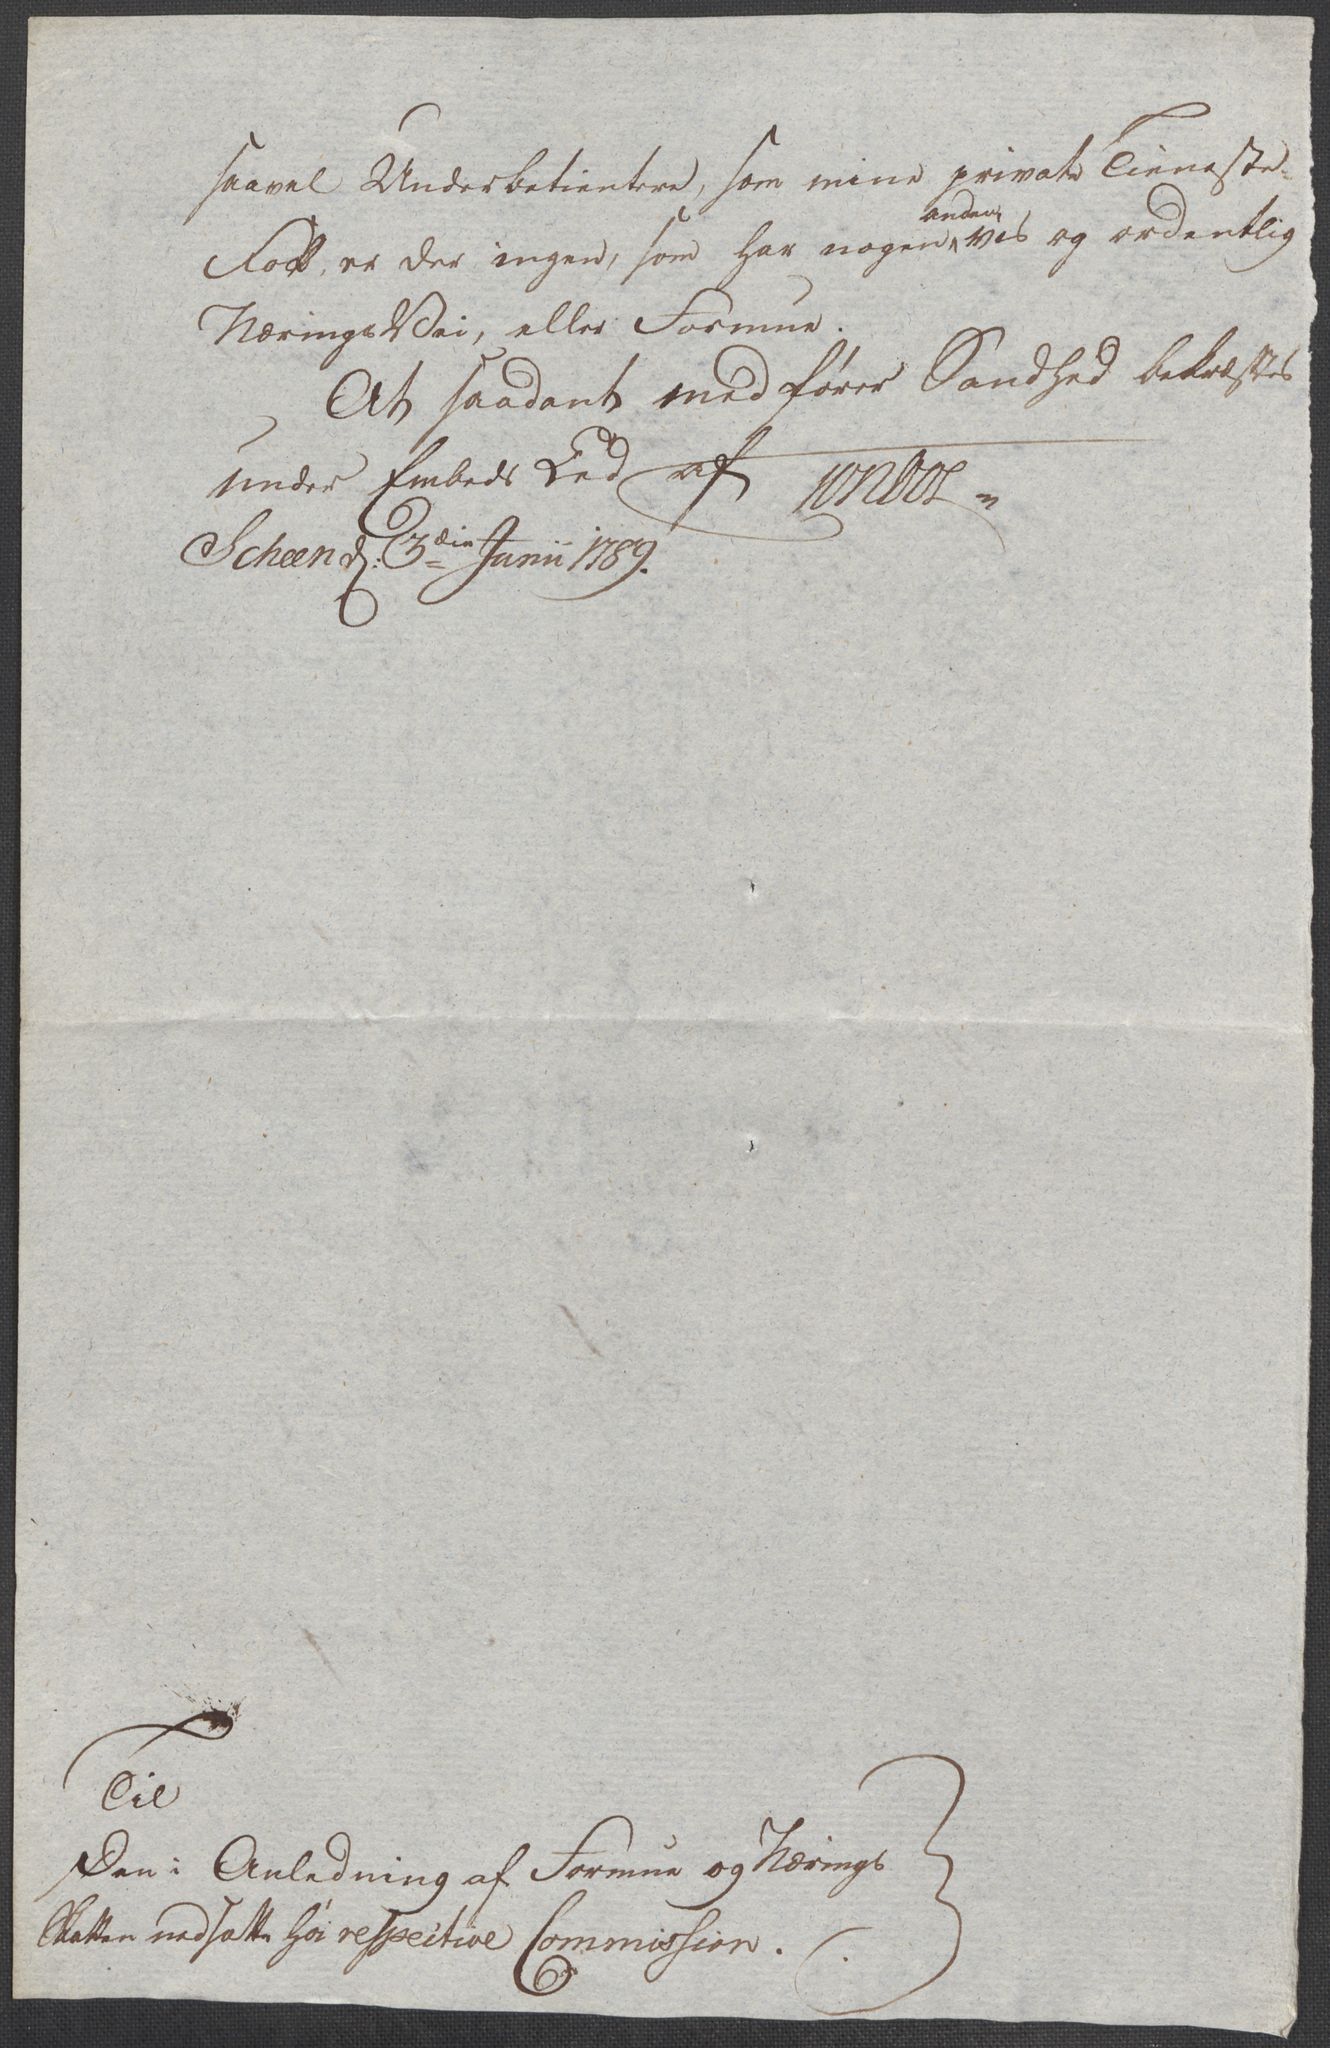 saavel Underbetientere, som mine private Tieneste-
Folk, er der ingen, som har nogen anden vis og ordentlig
NæringsVei, eller Formue.
At saadant medfører Sandhed bekræftes
under Embeds Eed af
Scheen d: 3die Junii 1789.
Til
Den i Anledning af Formue og Nærings
Skatten nedsatte høi respective Commission.